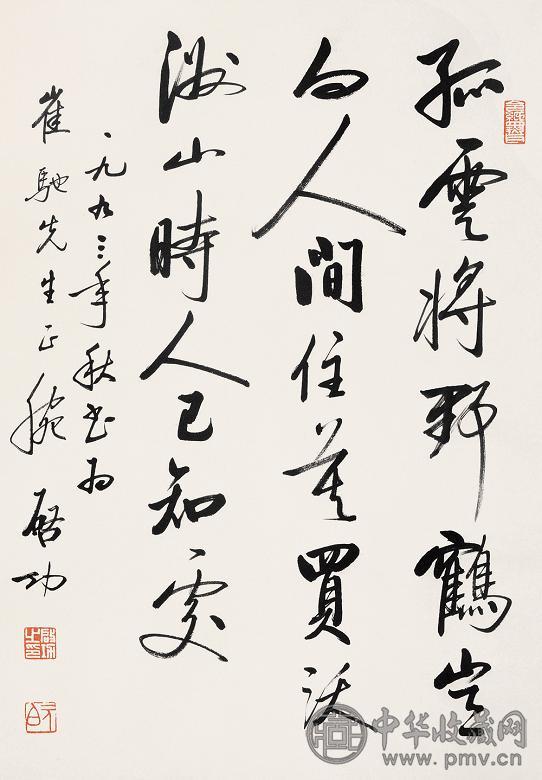 孤雲將野鶴豈
向人間住莫買沃
洲山時人已知處
一九九三年秋书为
崔馳先生正腕 启功
啟功之印
元白
中华收藏网
www.pmv.cn